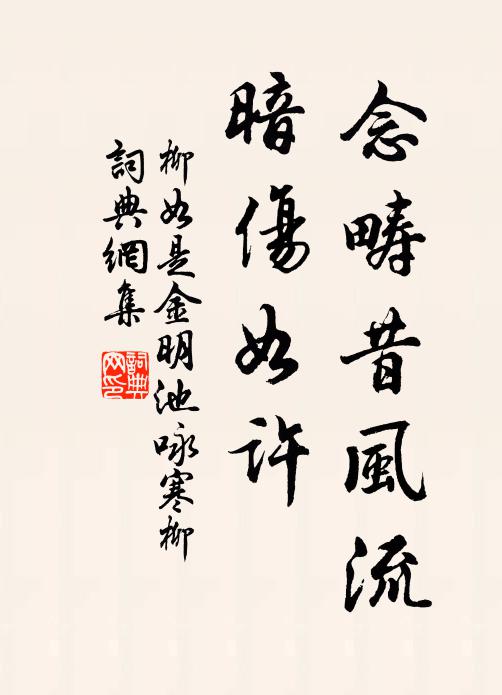 念疇昔風流
暗傷如許
柳如是金明池詠寒柳
詞典網集
詞典網印